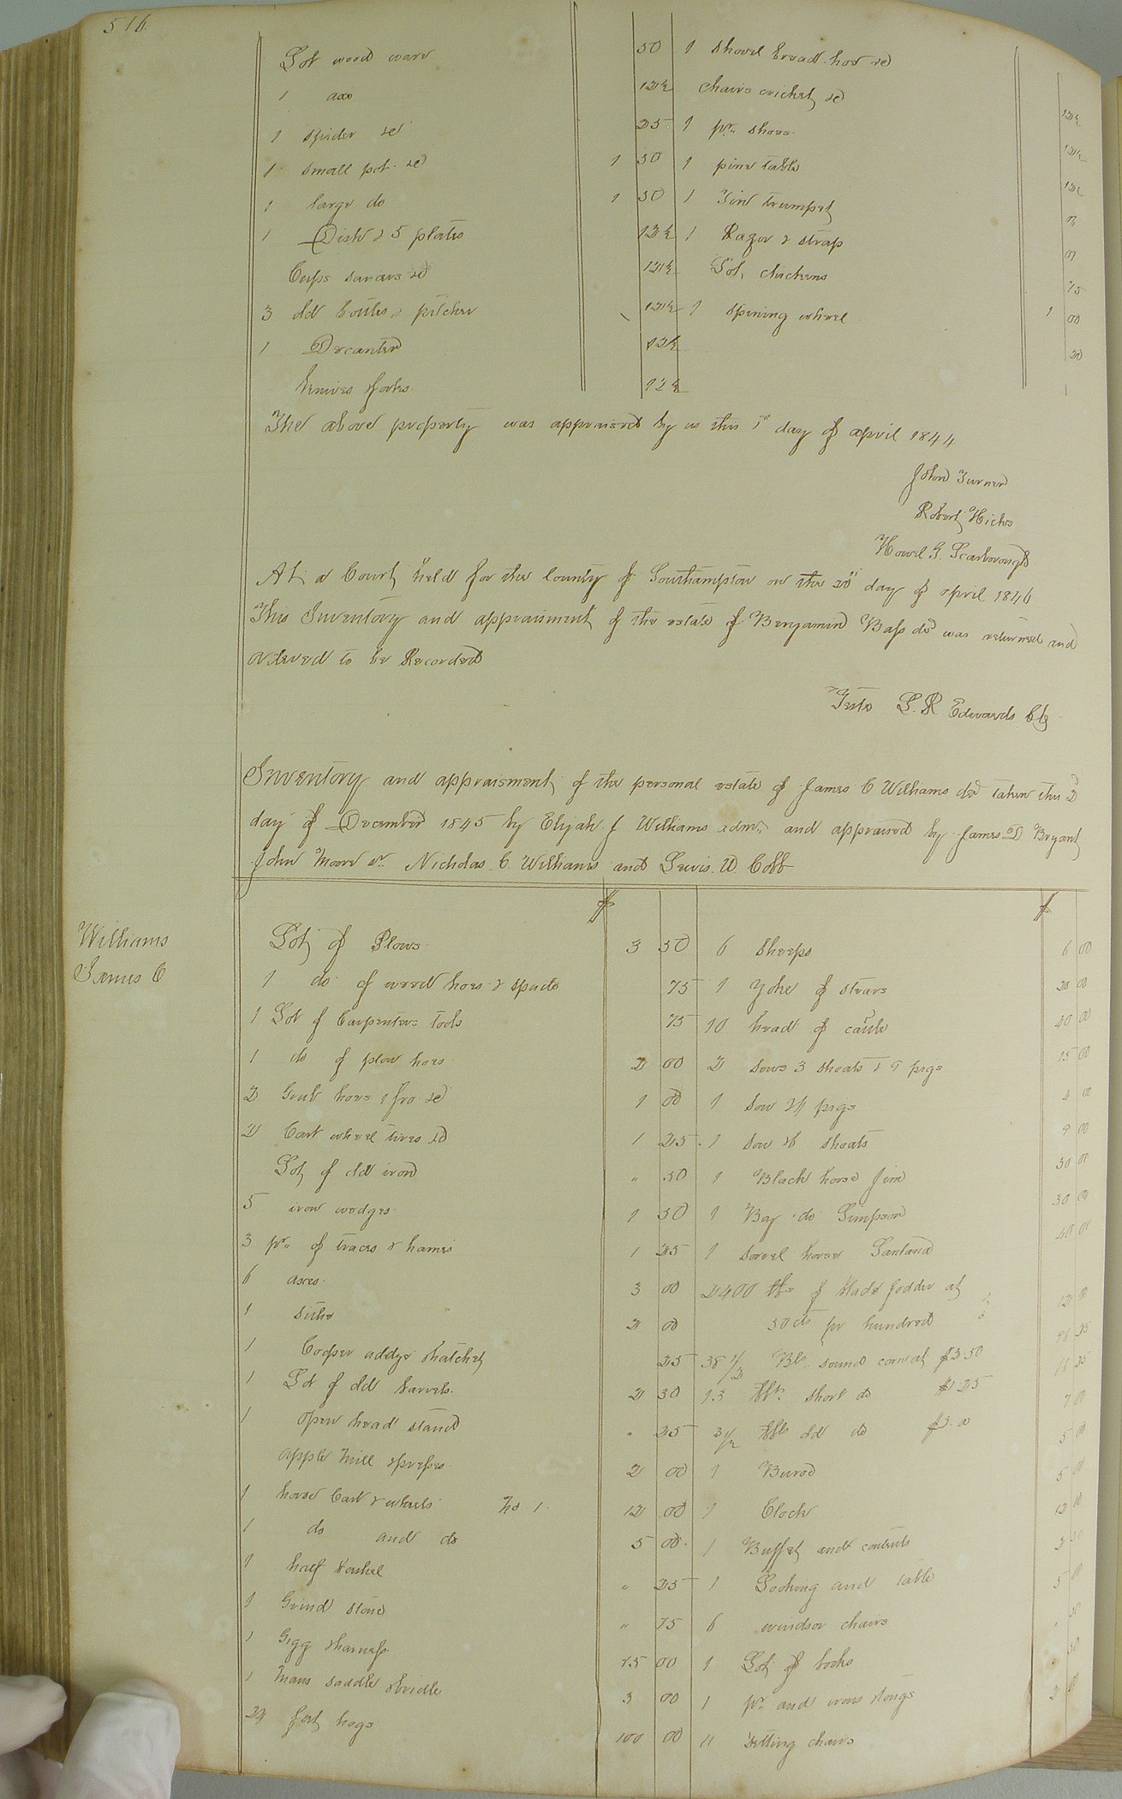 516
Lot wood ware 50
1 axe 12½
1 spider &c 25
1 small pot &c 1 50
1 large do 1 50
1 Dish & 5 plates 12½
Cups saucers &c 12½
3 old bottles & pitcher 12½
1 Decanter 12½
knives & forks 12½
1 shovel broad hoe &c
chairs cricket &c 12½
1 pr. shoes 12½
1 pine table 12½
1 Tin trumpet
1 Razor & strap
Lot chickens 75
1 spining wheel 1 00
The above property was appraised by us this 1st day of april 1844
John Turner
Robert Hicks
Howel G. Scarborough
At a Court held for the County of Southampton on the 20th day of april 1846
This Inventory and appraisment of the estate of Benjamin Bass decd was returned and
ordered to be Recorded
Teste L. R Edwards Clk
Inventory and appraisment of the personal estate of James C Williams decd taken this 2d
day of December 1845 by Elijah J Williams admr. and appraised by James D Bryant
John Moore sr. Nicholas C. Williams and Lewis W. Cobb
Williams
James C
$
Lot of Plows 3 50
1 do of weed hoes & spade 75
1 Lot of Carpenters tools 75
1 do of plow hoes 2 00
2 Grub hoes & fro &c 1 00
2 Cart wheel tires &c 1 25
Lot of old iron " 50
5 iron wedges 1 50
3 pr. of traces & hames 1 25
6 axes 3 00
1 2 00
1 Cooper addze & hatchet 25
1 Lot of old barrels 2 50
1 open head stand " 25
apple mill & presses 2 00
1 horse Cart & wheels No 1 12 00
1 do and do 5 00
1 half bushel " 25
1 Grind stone " 75
1 Gigg & harness 15 00
1 mans saddle & bridle 3 00
24 fat hogs 100 00
$
6 sheeps 6 00
1 Yoke of stears 20 00
10 head of cattle 40 00
2 sows 3 shoats & 9 pigs 15 00
1 sow & pigs
1 sow & 6 shoats 9 00
1 Black horse Jim 30 00
1 Bay do Simpson 30 00
1 sorrel horse Santana 40 00
2400 lbs of blade fodder at
50 cts pr hundred 12 00
38½ Bls. sound corn at $2 50
13 bbls. short do $1 25
3½ bbls old do
1 Bureau
1 Clock
1 Buffet and contents
1 Looking and table
6 windsor chairs
1 Lot of books
1 pr. and irons & tongs
11 setting chairs